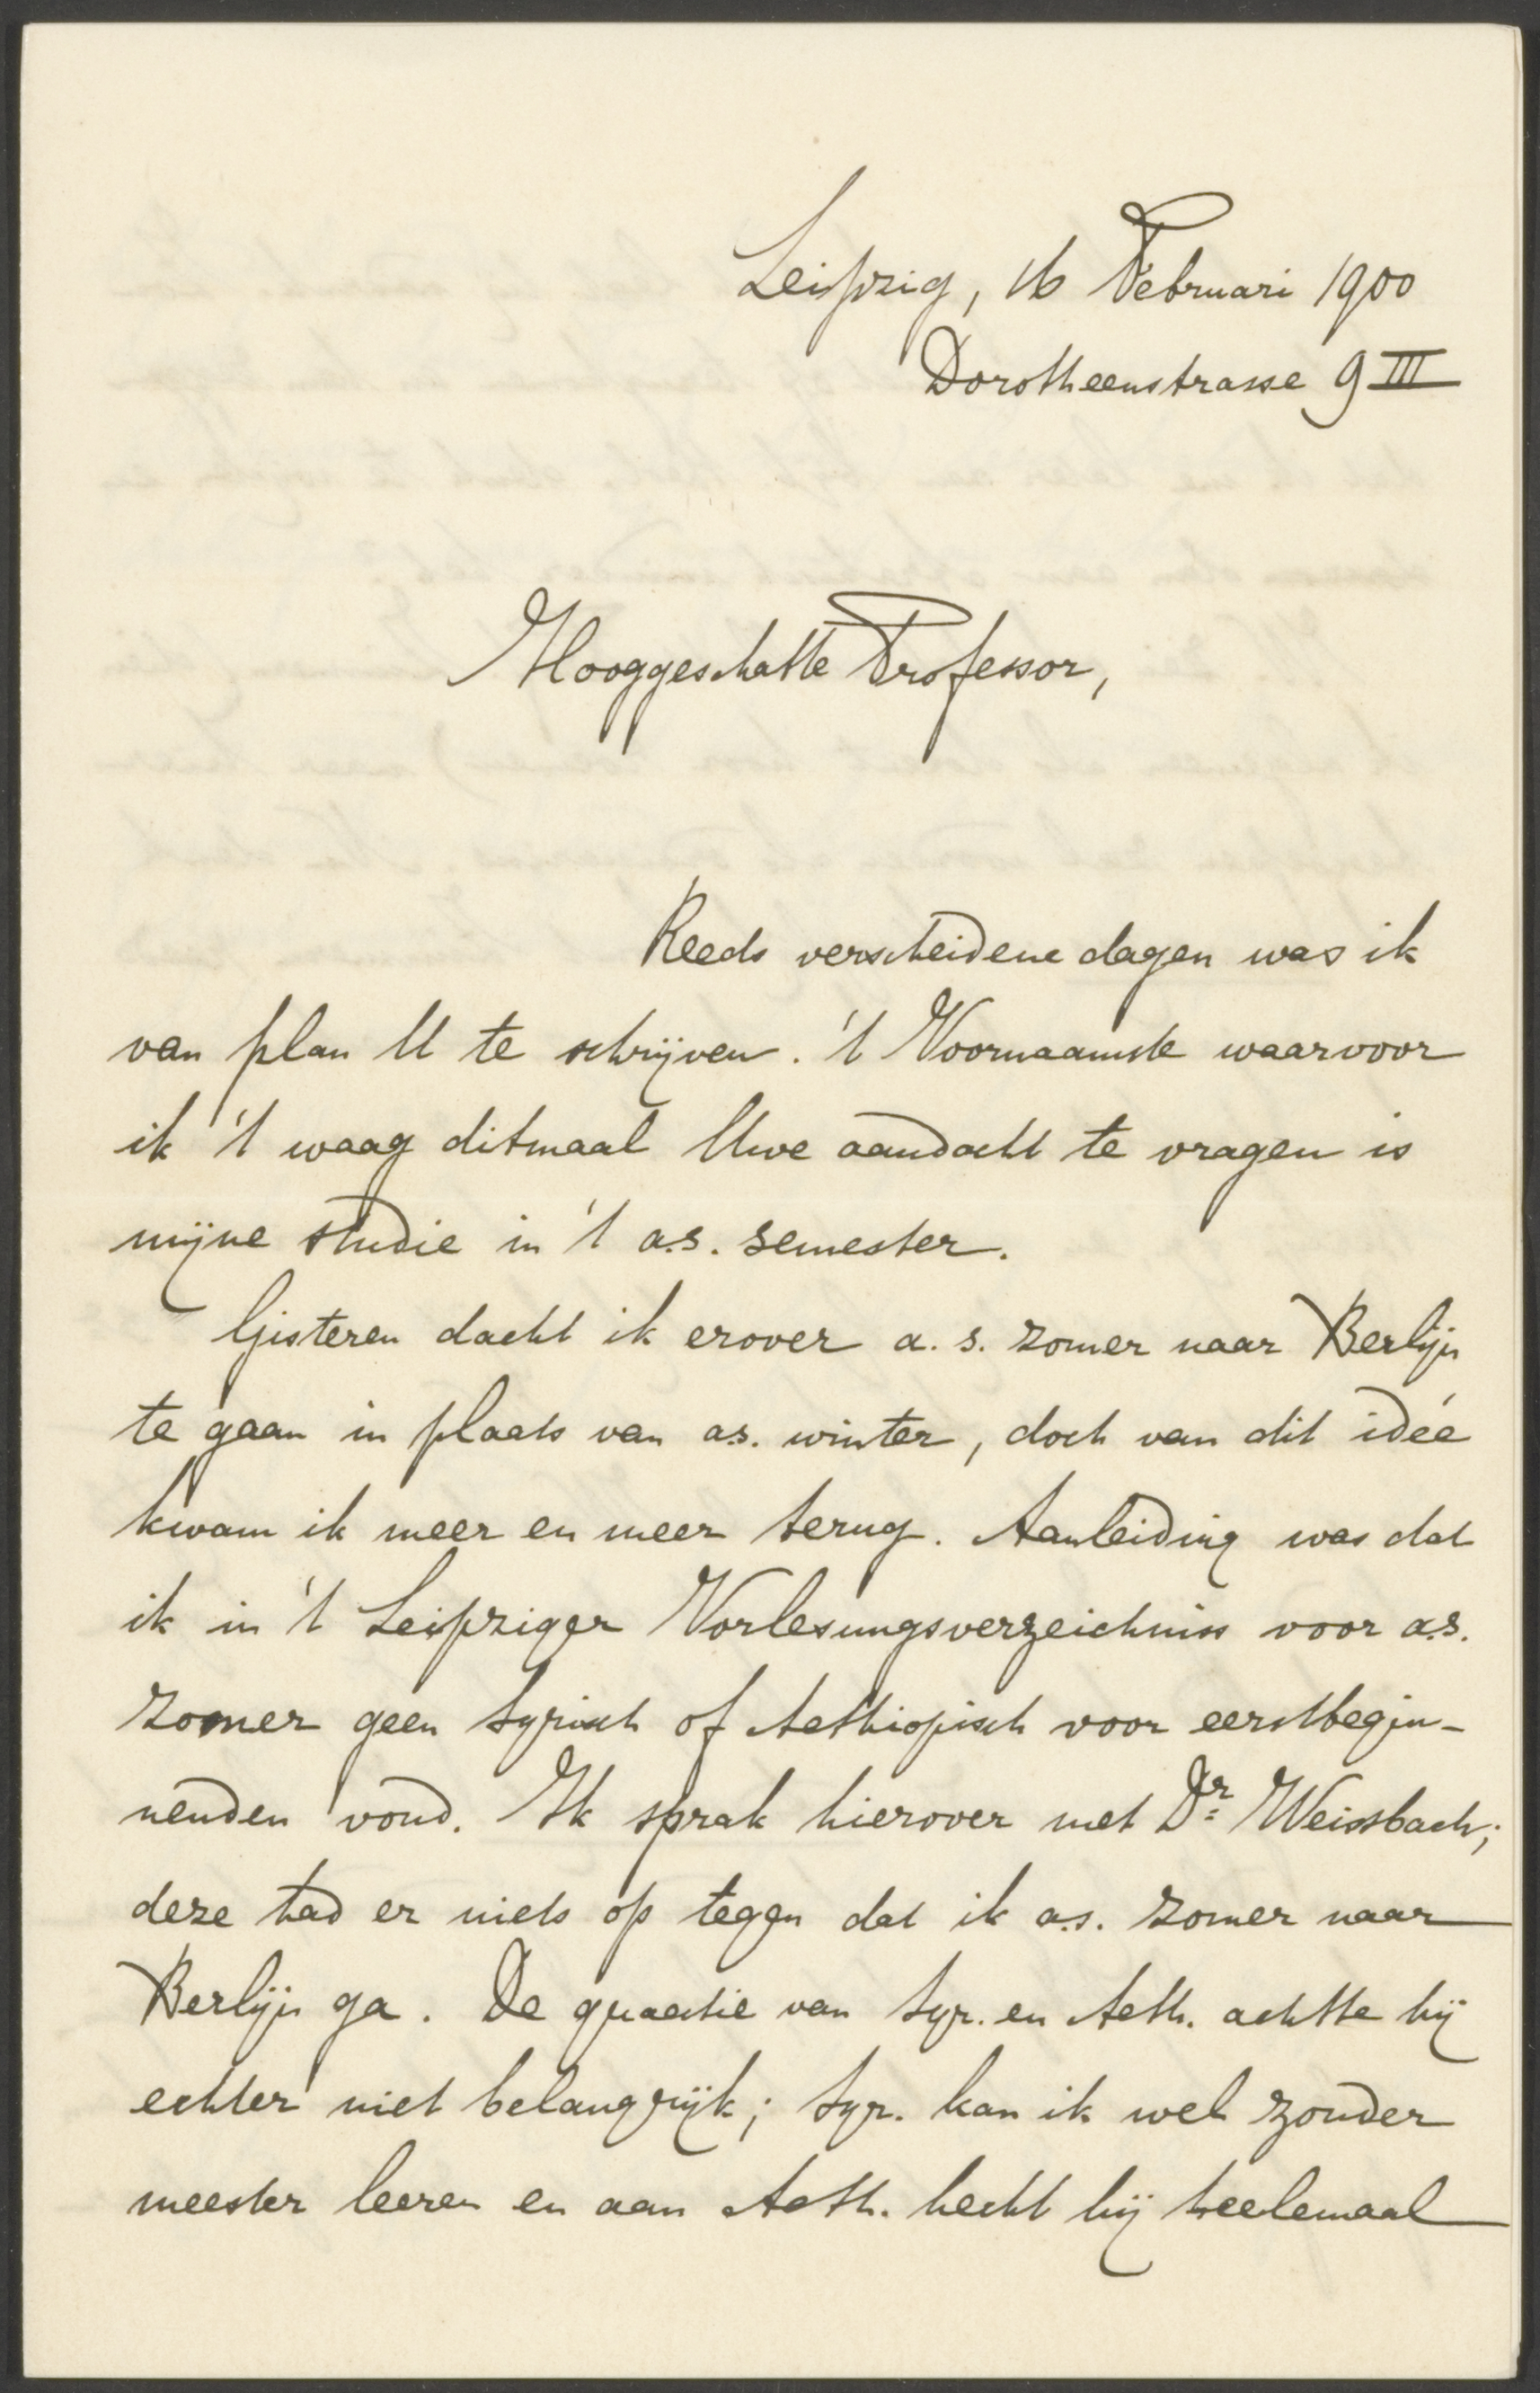 Leipzig, 16 Februari 1900
Dorotheenstrasse 9 III
Hooggeschatte Professor,
Reeds verscheidene dagen was ik
van plan U te schrijven. 't Voornaamste waarvoor
ik 't waag ditmaal Uwe aandacht te vragen is
mijne studie in 't a.s. semester.
Gisteren dacht ik erover a.s. zomer naar Berlijn
te gaan in plaats van a.s. winter, doch van dit idée
kwam ik meer en meer terug. Aanleiding was dat
ik in 't Leipziger Vorlesungsverzeichniss voor a.s.
zomer geen Syrisch of Aethiopisch voor eerstbegin-
nenden vond. Ik sprak hierover met Dr. Weissbach;
deze had er niets op tegen dat ik a.s. zomer naar
Berlijn ga. De quaestie van Syr. en Aeth. achtte hij
echter niet belangrijk; Syr. kan ik wel zonder
meester leeren en aan Aeth. hecht hij heelemaal